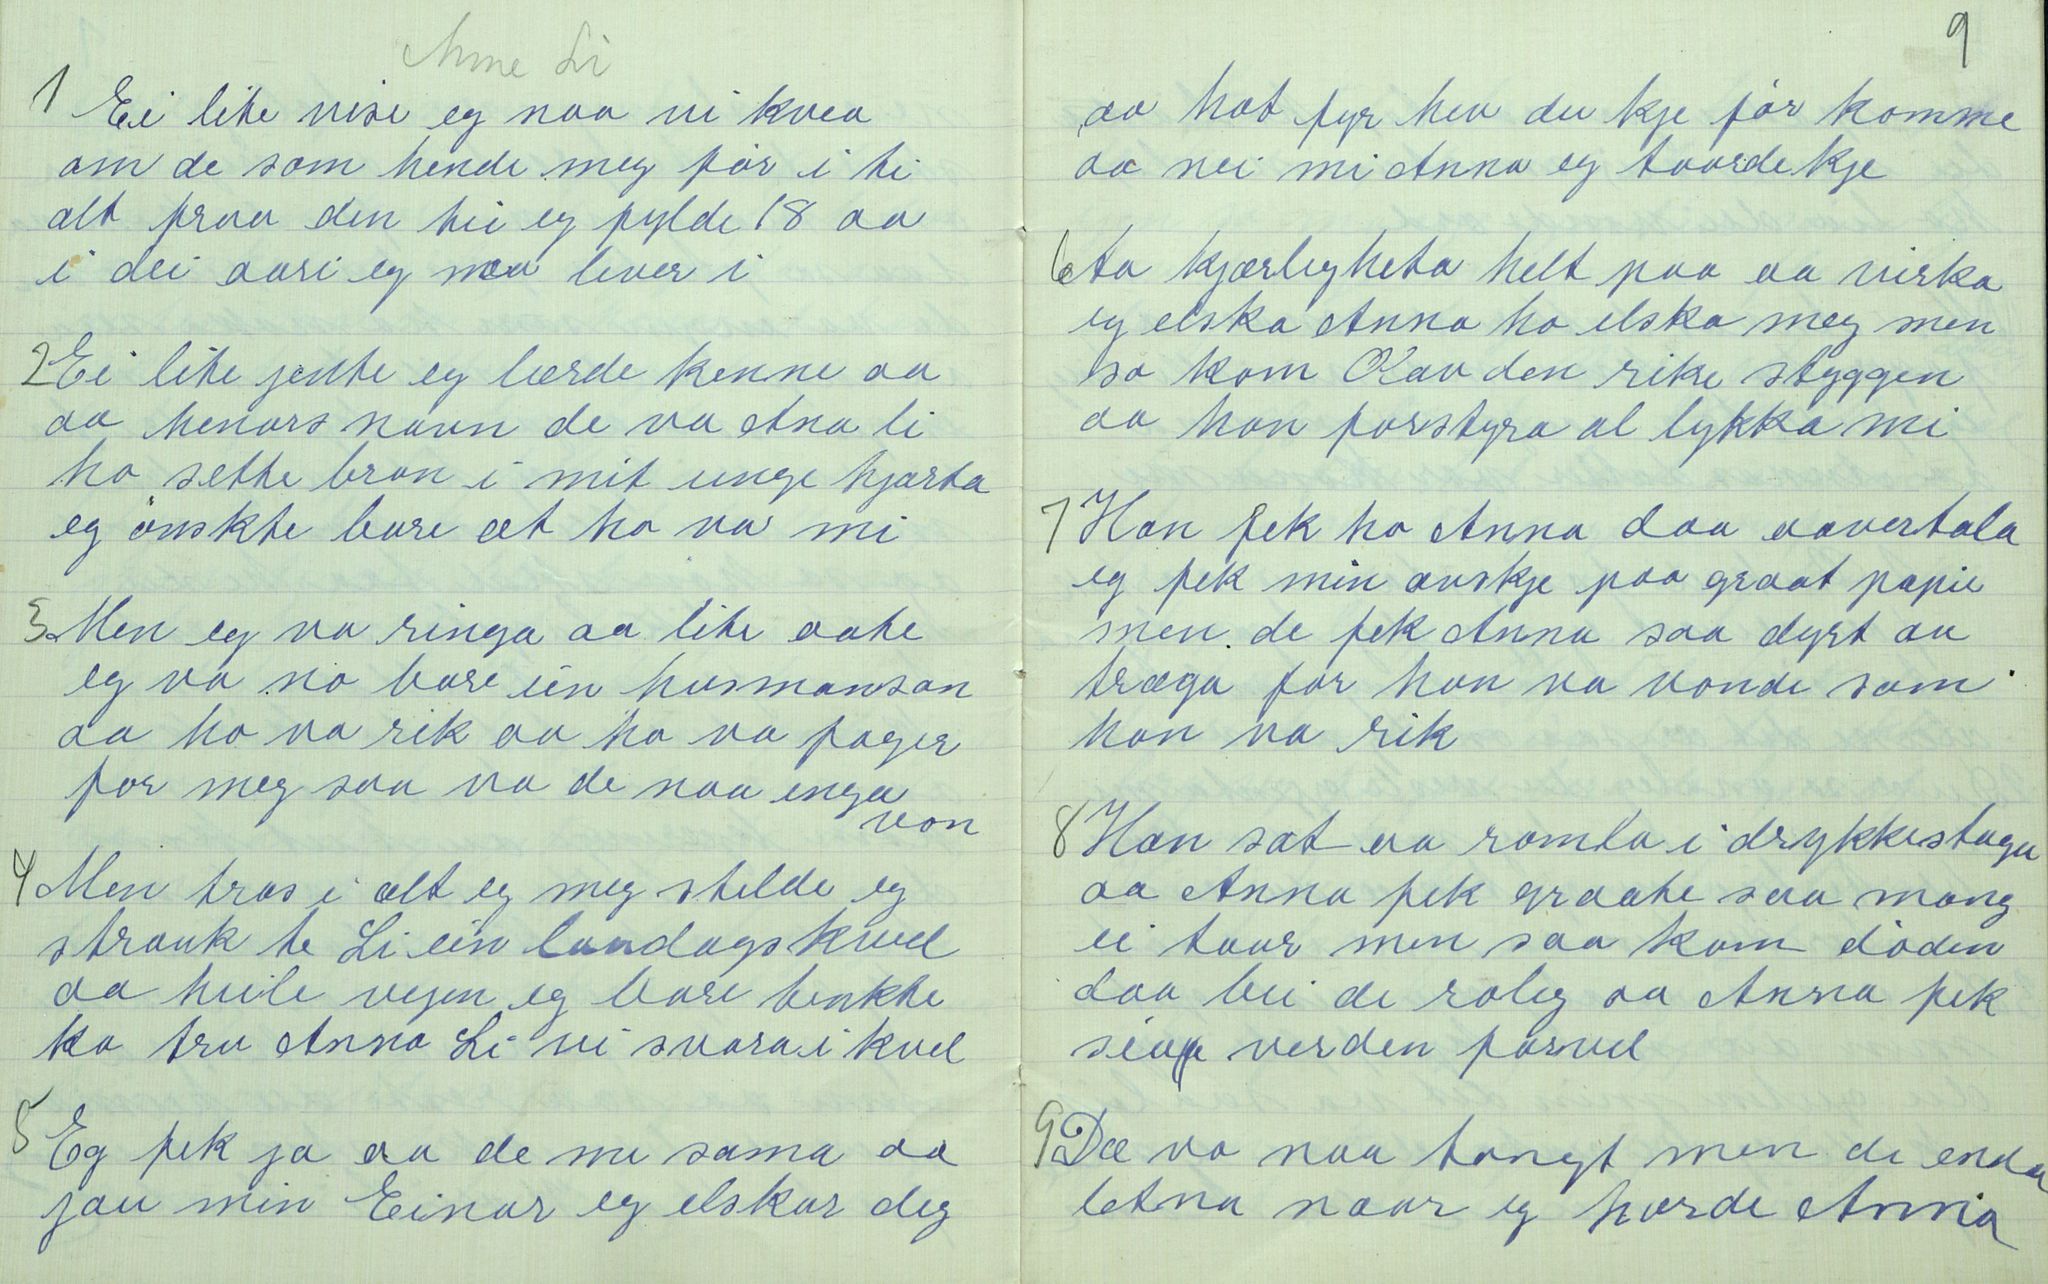 Anne Li
1 Ei lite vise eg naa vi kvea
om de som hende meg för i ti
alt fraa den tii eg fylde 18 aa
i dei aari eg naa lever i
2 Ei lite jente eg lærde kenne aa
aa henars navn de va Ana li
ho sette bran i mit unge hjarta
eg önskte bare at ho va mi
3 Men eg va ringa aa lite aate
eg va no bare ein husmanson
aa ho va rik aa ho va fager
for meg saa va de naa inga
von
4 Men tros i alt eg meg stelde eg
strauk te Li ein laudagskvel
aa heile vejen eg bare tenkte
ka tru Anna Li vi svara i kvel
5 Eg fek ja aa de me sama aa
jau min Einar eg elskar deg
9
aa hot fyr hev du kje för komme
aa nei mi Anna eg taarde kje
6 ta kjærligheta helt paa aa virka
eg elska Anna ho elska meg men
so kom Olav den rike styggen
aa han forstyra al lykka mi
7 Han fek ho Anna daa aavertala
eg fek min avskje paa graat papir
men de fek Anna saa dyrt aa
træga for han va vonde som
han va rik
8 Han sat aa ramla i drykkestaga
aa Anna fek graate saa mang
ei taar men saa kom döden
daa bei de roleg aa Anna fek
seia verden farvel
9 Dæ va naa tungt men de enda
letna naar eg hørde Anna